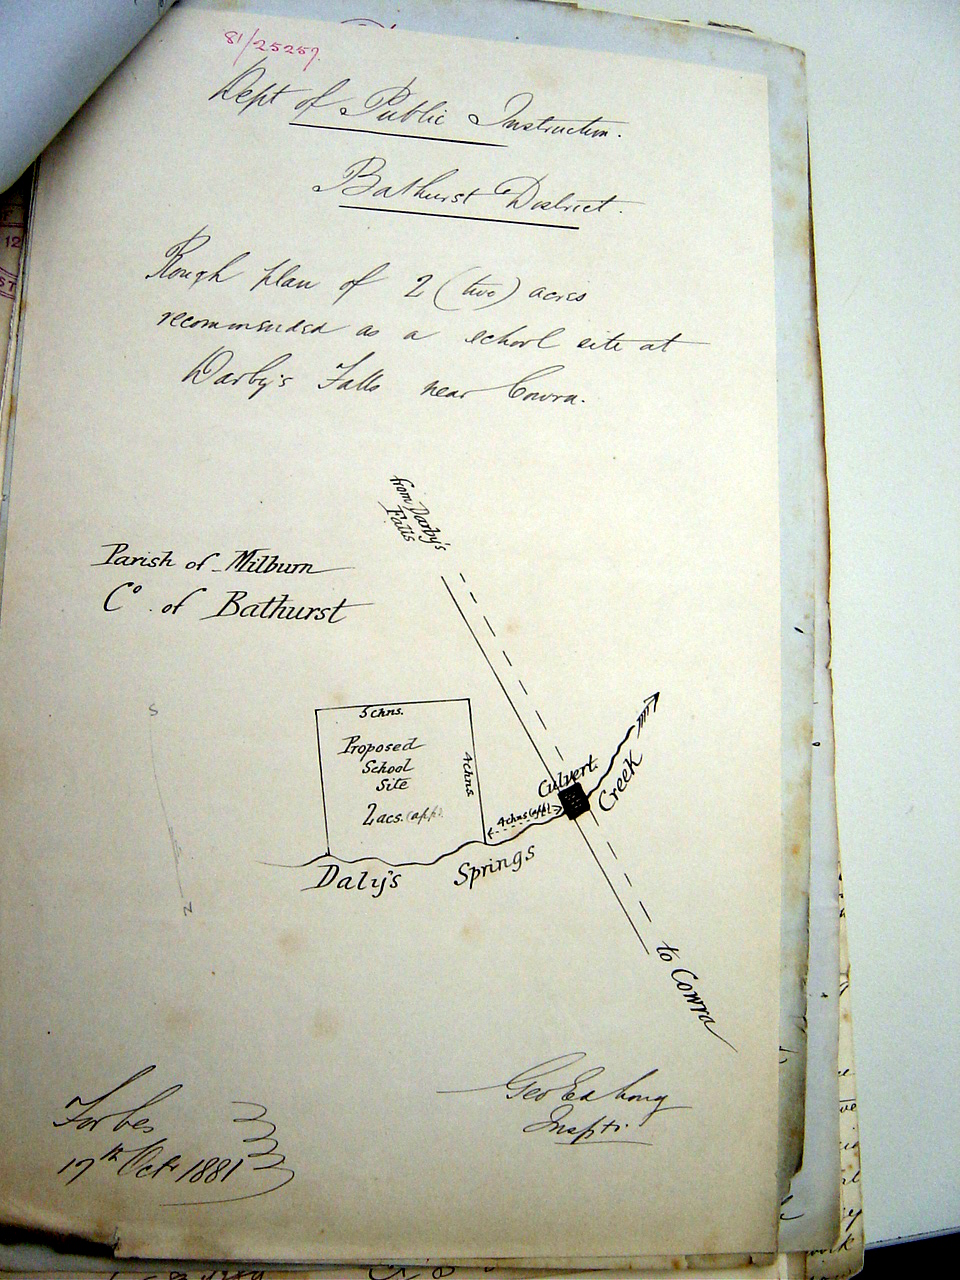 81/25257.
Dept of Public Instruction.
Bathurst District.
Rough plan of 2 (two) acres
recommended as a school site at
Darby's Falls near Cowra.
from Darby's
Falls
Parish of Milburn
Co. of Bathurst
S
5 chns.
Proposed
School
Site
2 acs. (app).
4 chns.
Culvert.
Creek
4 chns (app)
Daly's Springs
N
to Cowra
Geo Ed Long
Insptr.
Forbes
17th Oct 1881